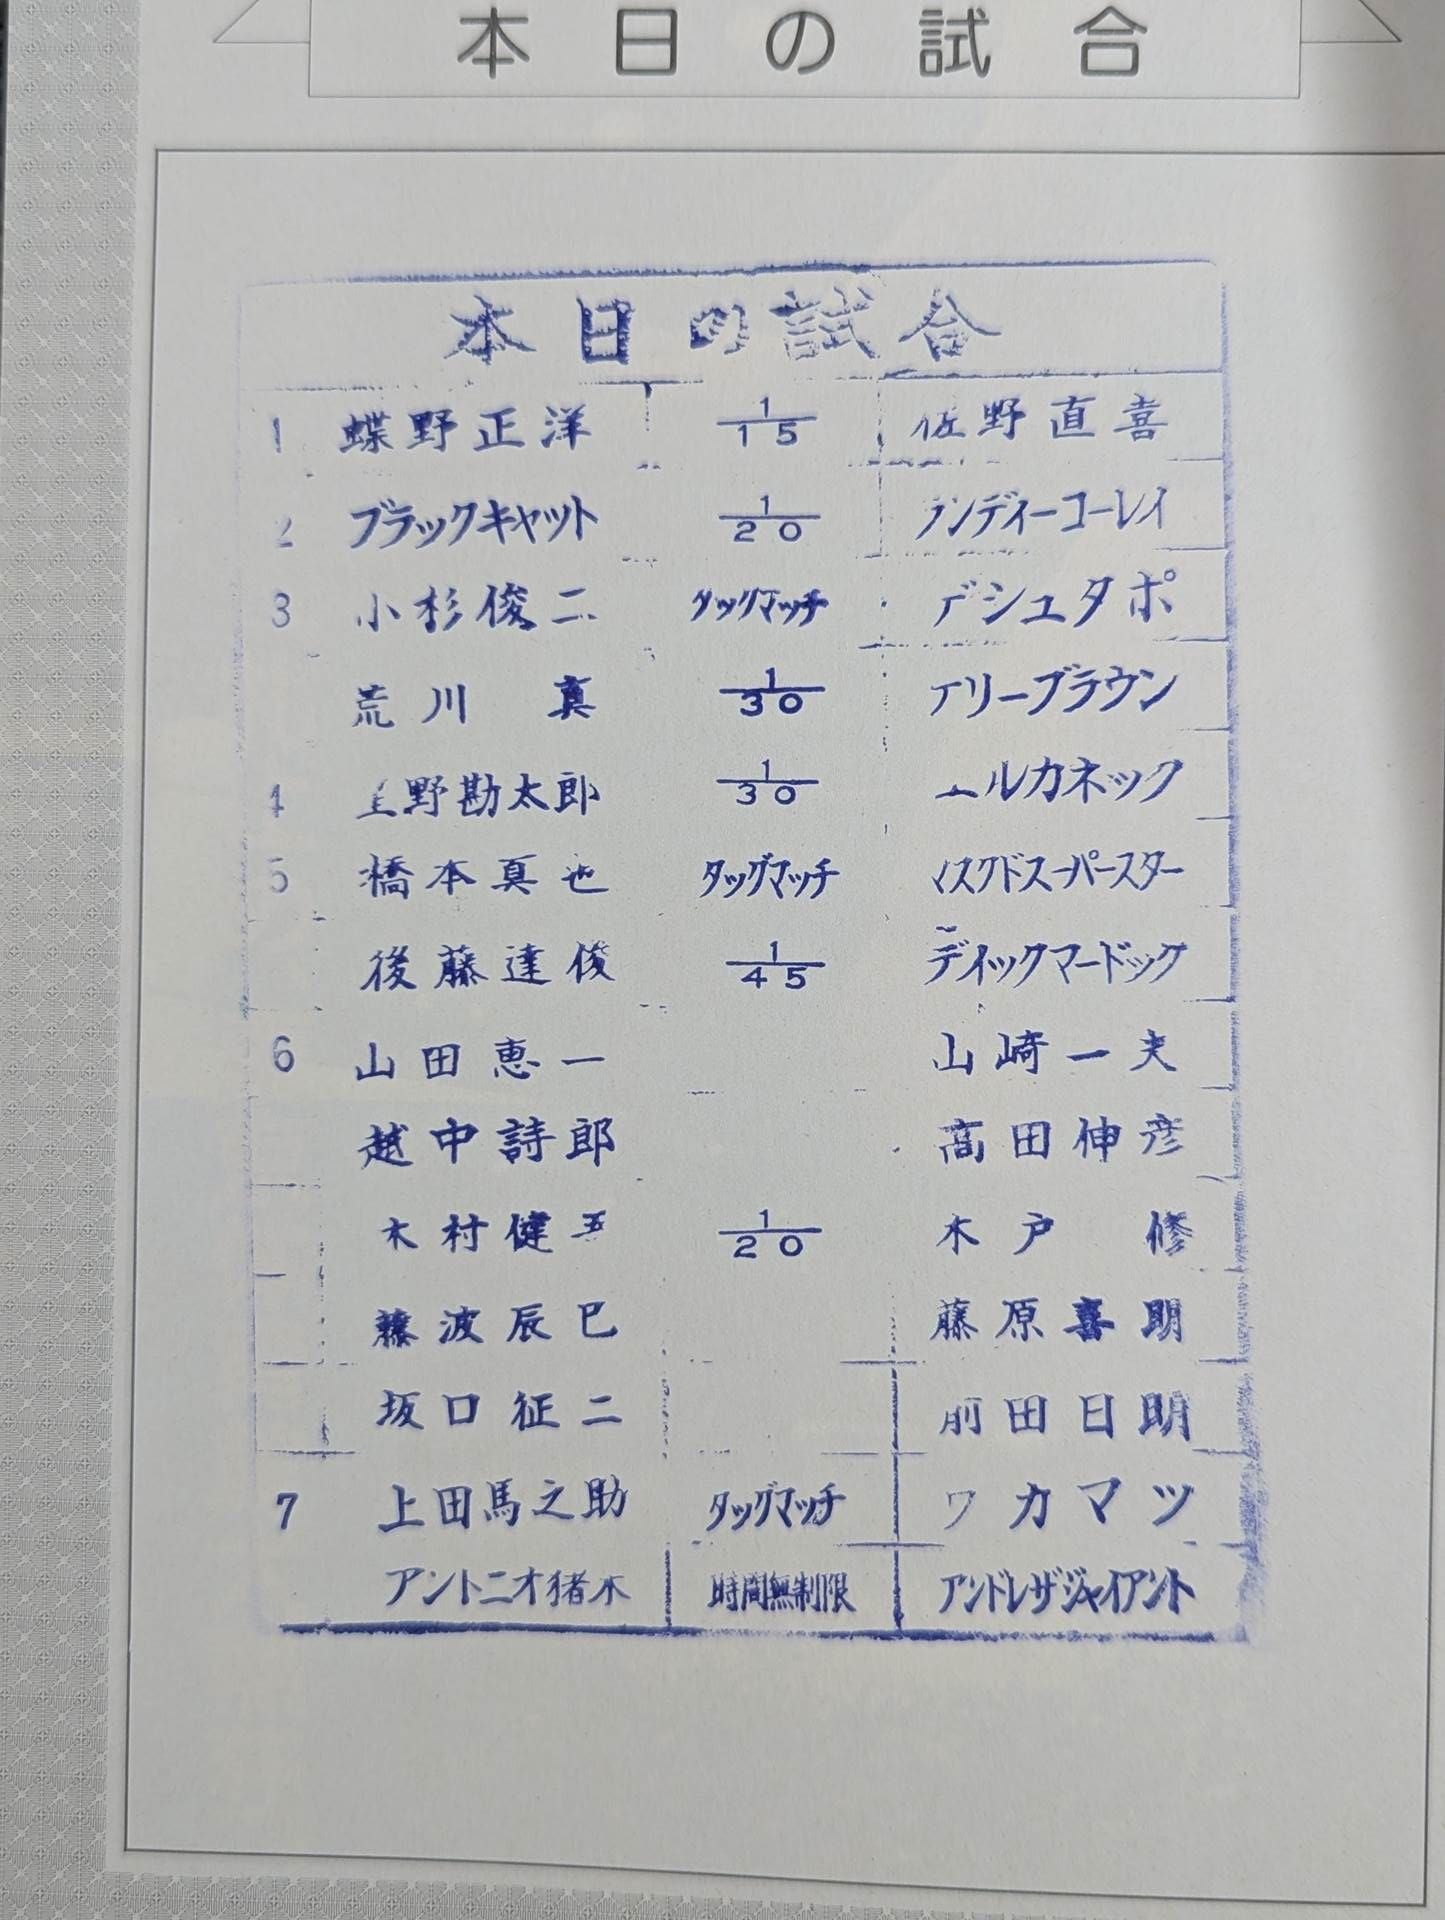 本日の試合
本日の試合
1 蝶野正洋 1/15 佐野直喜
2 ブラックキャット 1/20 アンディーコーレイ
3 小杉俊二 タッグマッチ デシュタポ
荒川 真 1/30 テリーブラウン
4 星野勘太郎 1/30 エルカネック
5 橋本真也 タッグマッチ マスクドスーパースター
後藤達俊 1/45 ディックマードック
6 山田恵一 山崎一夫
越中詩郎 高田伸彦
木村健吾 1/20 木戸 修
藤波辰巳 藤原喜明
坂口征二 前田日明
7 上田馬之助 タッグマッチ ワカマツ
アントニオ猪木 時間無制限 アンドレザジャイアント